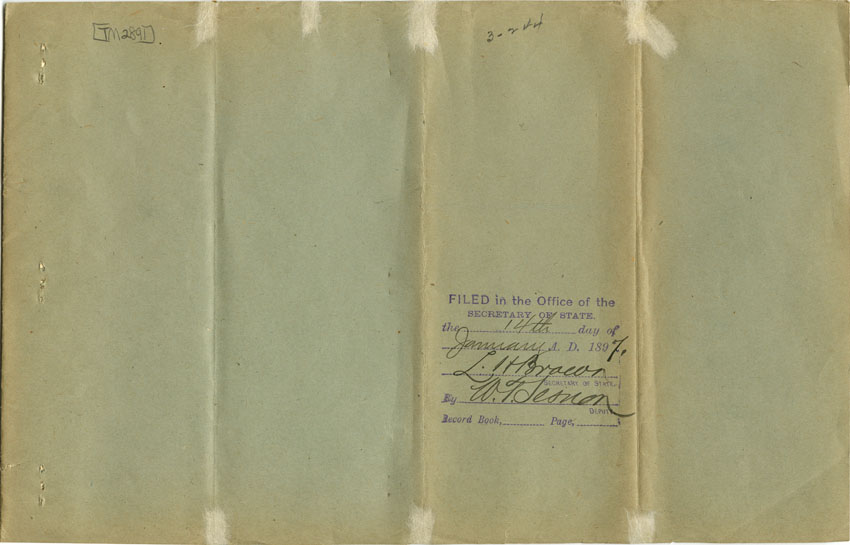 [TM2891]
3-244
FILED in the Office of the
SECRETARY OF STATE.
the 14th day of
January A. D. 1897.
L. H Brown
SECRETARY OF STATE.
By W. T. Sesnon
DEPUTY
Record Book, Page,